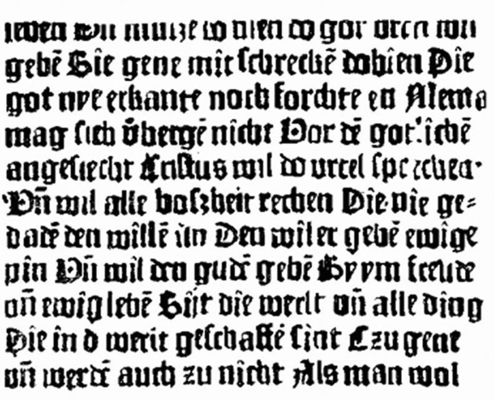 geben Sie gene mit schrecken dohien Die
got nye erkante noch forchte en Niema
mag sich vbergē nicht Vor dē gotlichē
angesiecht Cristus wil do vrteil sprechen.
Vn̄ wil alle boszheit rechen Die nie ge=
datē den willē sin Den wil er gebē ewige
pin Vn̄ wil den gudē gebē By ym freude
vn̄ ewig lebē Sijt die werlt vn̄ alle ding
Die in d werlt geschaffē sint Czu gene
vn̄ werdē auch zu nicht Als man wol